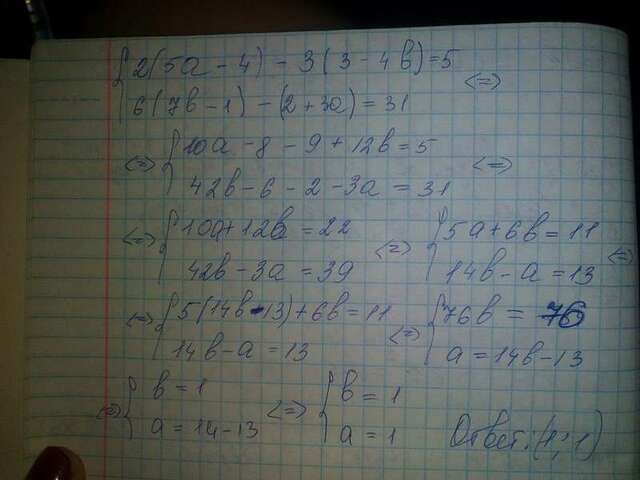 { 2(5a - 4) - 3(3 - 4b) = 5
{ 6(7b - 1) - (2 + 3a) = 31 <=>
<=> { 10a - 8 - 9 + 12b = 5
{ 42b - 6 - 2 - 3a = 31 <=>
<=> { 10a + 12b = 22
{ 42b - 3a = 39
<=> { 5a + 6b = 11
{ 14b - a = 13 <=>
<=> { 5(14b - 13) + 6b = 11
{ 14b - a = 13
<=> { 76b = 76
{ a = 14b - 13
<=> { b = 1
{ a = 14 - 13
<=> { b = 1
{ a = 1
Ответ: (1; 1)